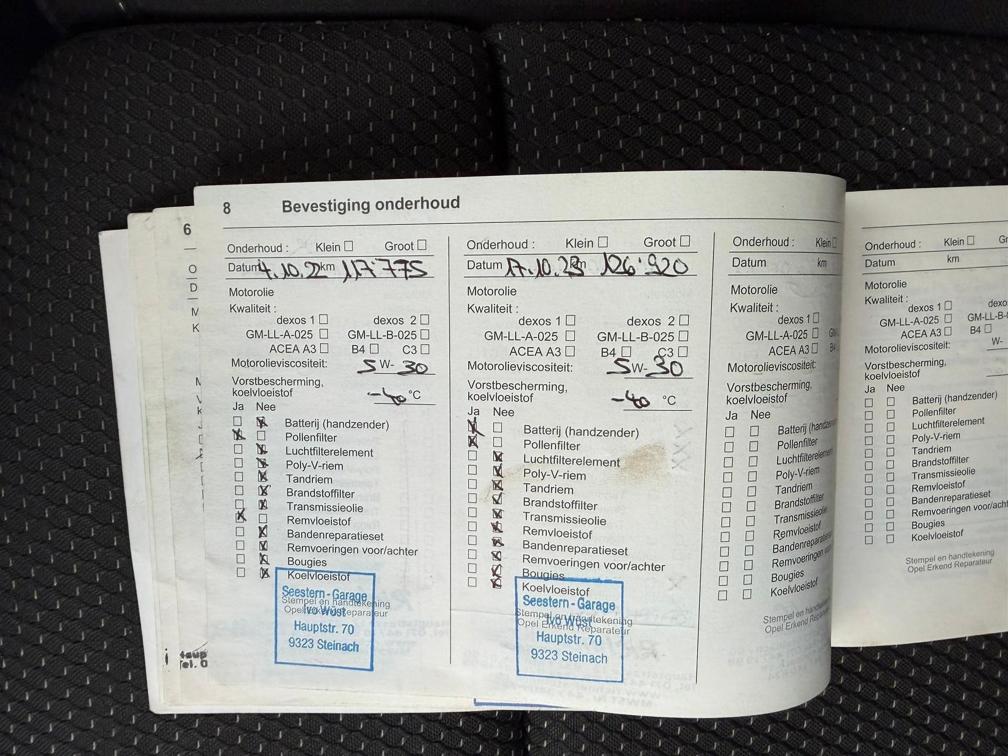 8 Bevestiging onderhoud
Onderhoud : Klein Groot
Datum 4.10.22 km 117'775
Motorolie
Kwaliteit :
dexos 1 dexos 2
GM-LL-A-025 GM-LL-B-025
ACEA A3 B4 C3
Motorolieviscositeit: 5 W- 30
Vorstbescherming,
koelvloeistof -40 °C
Ja Nee
Batterij (handzender)
Pollenfilter
Luchtfilterelement
Poly-V-riem
Tandriem
Brandstoffilter
Transmissieolie
Remvloeistof
Bandenreparatieset
Remvoeringen voor/achter
Bougies
Koelvloeistof
Stempel en handtekening
Opel Erkend Reparateur
Seestern-Garage
Ivo Wüst
Hauptstr. 70
9323 Steinach
Onderhoud : Klein Groot
Datum 17.10.23 126'920
Motorolie
Kwaliteit :
dexos 1 dexos 2
GM-LL-A-025 GM-LL-B-025
ACEA A3 B4 C3
Motorolieviscositeit: 5 W- 30
Vorstbescherming,
koelvloeistof -40 °C
Ja Nee
Batterij (handzender)
Pollenfilter
Luchtfilterelement
Poly-V-riem
Tandriem
Brandstoffilter
Transmissieolie
Remvloeistof
Bandenreparatieset
Remvoeringen voor/achter
Bougies
Koelvloeistof
Stempel en handtekening
Opel Erkend Reparateur
Seestern-Garage
Ivo Wüst
Hauptstr. 70
9323 Steinach
Onderhoud : Klein
Datum km
Motorolie
Kwaliteit :
dexos 1
GM-LL-A-025
ACEA A3
Motorolieviscositeit:
Vorstbescherming,
koelvloeistof
Ja Nee
Batterij (handzender)
Pollenfilter
Luchtfilterelement
Poly-V-riem
Tandriem
Brandstoffilter
Transmissieolie
Remvloeistof
Bandenreparatieset
Remvoeringen
Bougies
Koelvloeistof
Stempel en handtekening
Opel Erkend Reparateur
Onderhoud : Klein Gro
Datum km
Motorolie
Kwaliteit :
dexos 1 dexo
GM-LL-A-025 GM-LL-B-
ACEA A3 B4
Motorolieviscositeit: W-
Vorstbescherming,
koelvloeistof
Ja Nee
Batterij (handzender)
Pollenfilter
Luchtfilterelement
Poly-V-riem
Tandriem
Brandstoffilter
Transmissieolie
Remvloeistof
Bandenreparatieset
Remvoeringen voor/acht
Bougies
Koelvloeistof
Stempel en handtekening
Opel Erkend Reparateur
6